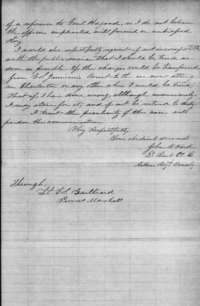 of a reference to Genl Hazard, as I do not believe
the officer implicated will furnish an unbiased
Story
I would also respectfully request if not incompatible
with the public service that I should be tried as
soon as possible. If the charges could be transferred
from to the one now sitting
in Charleston or any other where I would be tried
that if I have done wrong, although unconsciously
I may atone for it, and if not be restored to duty
I trust the peculiarity of the case will
pardon this communication
Very Respectfully
Your obedient Servant
John
Through,
Provost Marshall